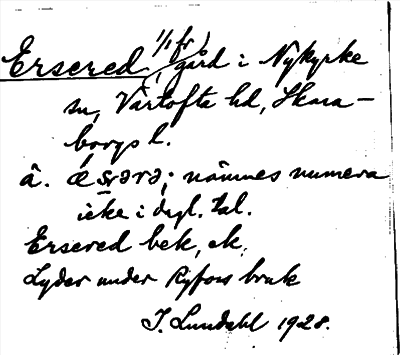 1/1 fr)
Ersered, gård i Nykyrke
sn, Vartofta hd, Skara-
borgs l.
â. æ̂ṣərə; nämnes numera
icke i dagl. tal.
Ersered bek, ek,
Lyder under Ryfors bruk
I. Lundahl 1928.